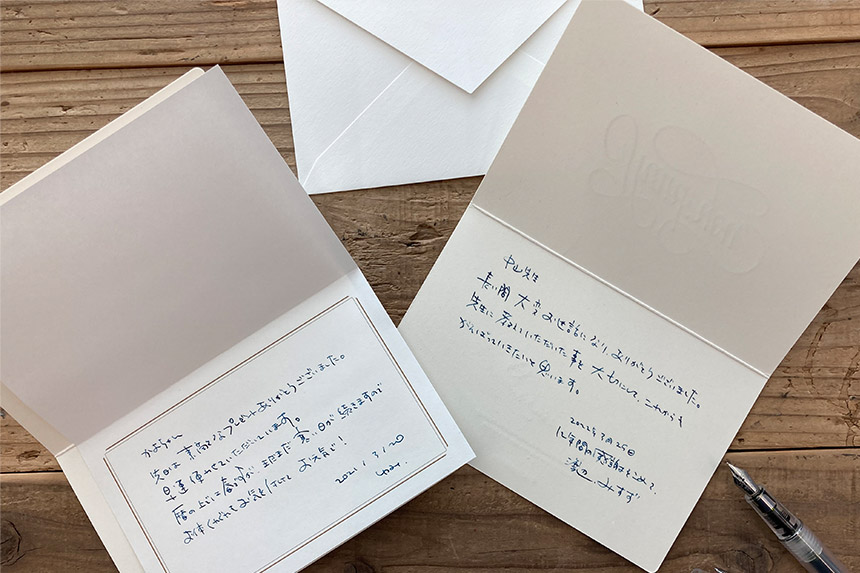 かよちゃん
先日は素敵なプレゼントありがとうございました。
早速使わせていただいています。
暦の上では春ですが、まだまだ寒い日が続きますので
お体くれぐれもお気をつけて お元気で!
2021/3/20
中山先生
長い間大変お世話になり、ありがとうございました。
先生に教えていただいた事を大切にして、これからも
がんばっていきたいと思います。
2022年3月25日
12年間の感謝をこめて、
渡辺 みすず
Thank you